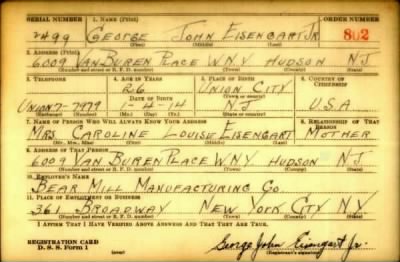 SERIAL NUMBER 1. NAME (Print) ORDER NUMBER
2499 GEORGE JOHN EISENGART JR 802
(First) (Middle) (Last)
2. ADDRESS (Print)
6009 VAN BUREN PLACE W.N.Y. HUDSON NJ
(Number and street or R. F. D. number) (Town) (County) (State)
3. TELEPHONE 4. AGE IN YEARS 5. PLACE OF BIRTH 6. COUNTRY OF CITIZENSHIP
26 UNION CITY
DATE OF BIRTH (Town or county)
UNION 7-7979 1-4-14 NJ U.S.A
(Exchange) (Number) (Mo.) (Day) (Yr.) (State or country)
7. NAME OF PERSON WHO WILL ALWAYS KNOW YOUR ADDRESS 8. RELATIONSHIP OF THAT PERSON
MRS CAROLINE LOUISE EISENGART MOTHER
(Mr., Mrs., Miss) (First) (Middle) (Last)
9. ADDRESS OF THAT PERSON
6009 VAN BUREN PLACE W.N.Y. HUDSON NJ
(Number and street or R. F. D. number) (Town) (County) (State)
10. EMPLOYER'S NAME
BEAR MILL MANUFACTURING CO.
11. PLACE OF EMPLOYMENT OR BUSINESS
361 BROADWAY NEW YORK CITY NY
(Number and street or R. F. D. number) (Town) (County) (State)
I AFFIRM THAT I HAVE VERIFIED ABOVE ANSWERS AND THAT THEY ARE TRUE.
REGISTRATION CARD
D. S. S. Form 1 (over) George John Eisengart Jr.
(Registrant's signature)